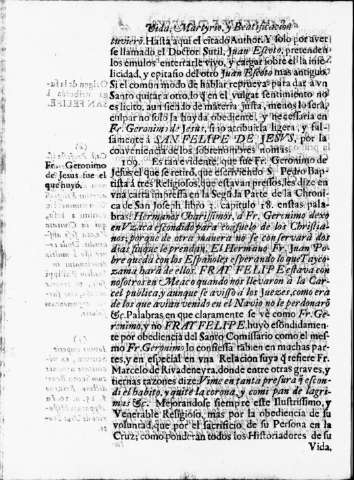 Vida, Martyrio, y Beatificacion
tuviere. Hasta aqui el citado Author. Y solo por aver
se llamado el Doctor Sutil, Juan Escoto, pretenden
los emulos enterrarle vivo, y cargar sobre èl la infe-
licidad, y epitafio del otro Juan Escoto mas antiguo.
Si el comun modo de hablar reprueva para dar à vn
Santo quitar à otro, lo q en el vulgar sentimiento no
es licito, aun siendo de materia justa, menos lo serà,
culpar no solo la huyda obediente, y necessaria en
Fr. Geronimo de Jesus, sino atribuirla ligera, y fal-
samente à SAN FELIPE DE JESVS, por la
conveniencia de los sobrenombres
109. Es tan evidente, que fue Fr. Geronimo de
Jesus el que se retirò, que escriviendo S. Pedro Bap-
tista à tres Religiosos, que estavan presos, les dize en
vna carta impressa en la Segũda Parte de la Chroni-
ca de San Joseph libro 3. capitulo 18. en estas pala-
bras: Hermanos Charissimos, à Fr. Geronimo dexo
en Vzaca escondido para consuelo de los Christia-
nos; porque de otra manera no se conservarà dos
dias sin que le prendan. El Hermano Fr. Juan Po-
bre quedà con los Españoles esperando lo que Tayco-
zama harà de ellos. FRAY FELIPE estava con
nosotros en Meaco quando nos llevaron à la Car-
cel publica, y aunque se avisò à los Juezes, como era
de los que avian venido en el Navio no le perdonarõ
&c. Palabras, en que claramente se vè como Fr. Ge-
ronimo, y no FRAY FELIPE, huyò escõdidamen-
te por obediencia del Santo Comissario como el mes-
mo Fr. Geronimo lo confiessa tambien en muchas par-
tes, y en especial en vna Relacion suya q refiere Fr.
Marcelo de Rivadeneyra, donde entre otras graves, y
tiernas razones dize: Vime en tanta presura q escon-
dì el habito, y quitè la corona, y comì pan de lagri-
mas &c. Mejorandose siempre este Ilustrissimo, y
Venerable Religioso, mas por la obediencia de su
voluntad, que por el sacrificio de su Persona en la
Cruz; como ponderan todos los Historiadores de su
Vida.
Fr. Geronimo
de Jesus fue el
que huyò.